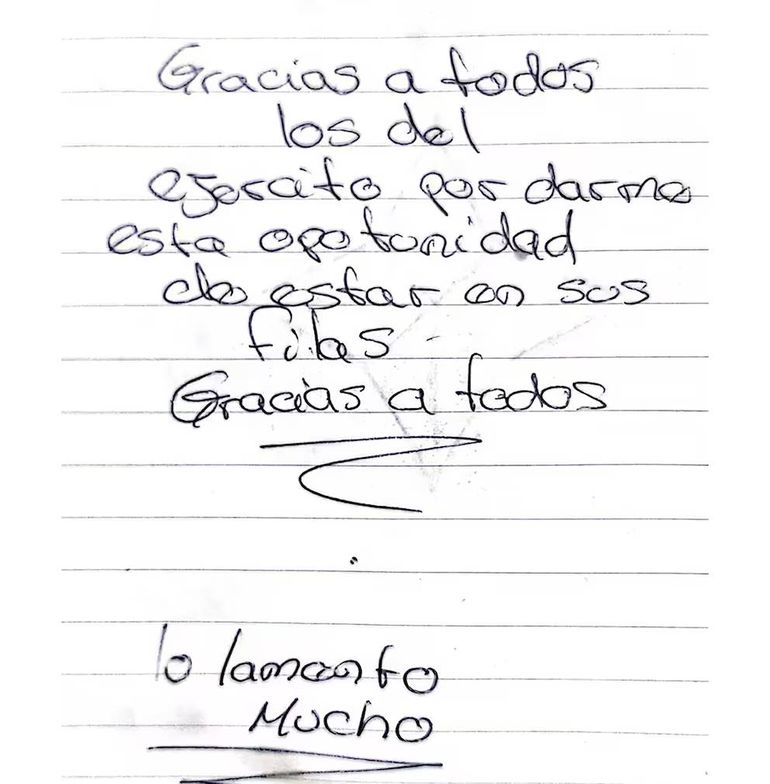 Gracias a todos
los del
ejercito por darme
esta opotunidad
de estar en sus
filas
Gracias a todos
lo lamento
Mucho